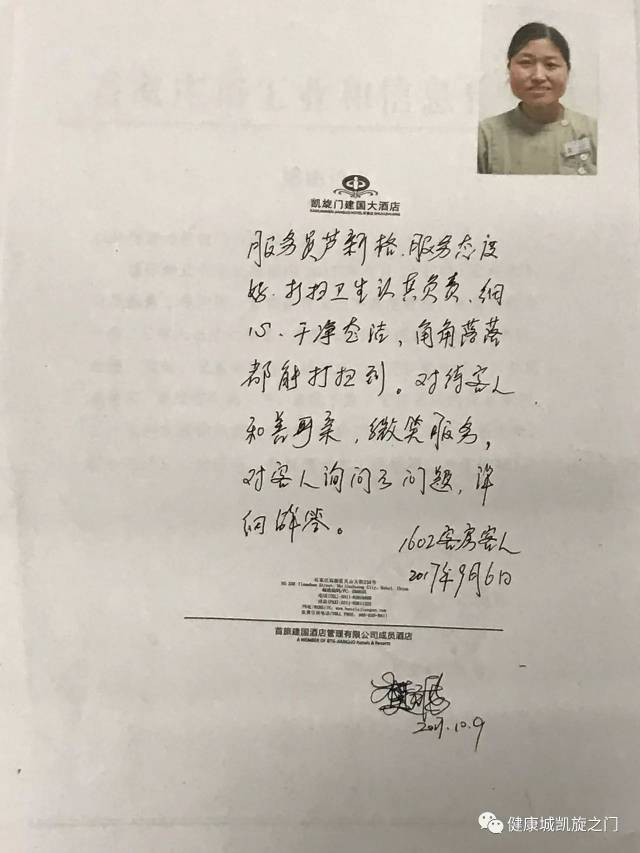 凯旋门建国大酒店
服务员芦新格、服务态度
好、打扫卫生认真负责、细
心、干净整洁，角角落落
都能打扫到。对待客人
和善可亲，微笑服务，
对客人询问的问题，详
细解答。
1602客房客人
2017年9月6日
首旅建国酒店管理有限公司成员酒店
A MEMBER OF BTG-JIANGUO Hotels & Resorts
2017.10.9
健康城凯旋之门